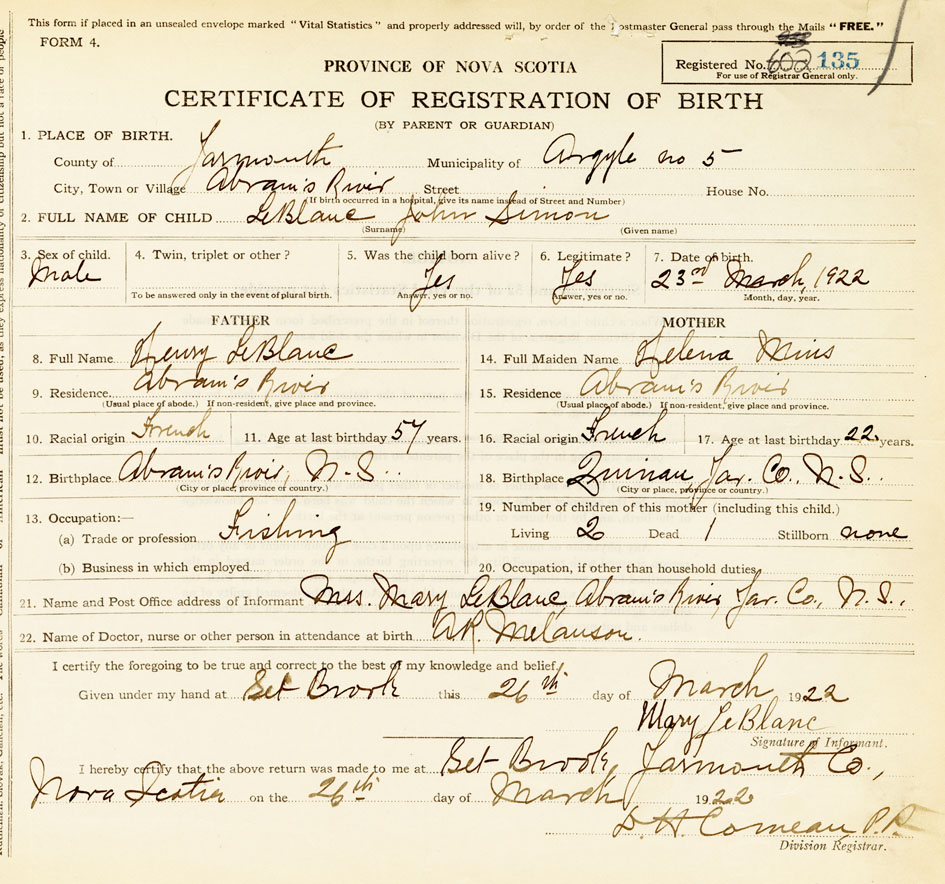 This form if placed in an unsealed envelope marked "Vital Statistics" and properly addressed will, by order of the Postmaster General pass through the Mails "FREE."
FORM 4.
PROVINCE OF NOVA SCOTIA
Registered No. 602 135
For use of Registrar General only.
CERTIFICATE OF REGISTRATION OF BIRTH
(BY PARENT OR GUARDIAN)
1. PLACE OF BIRTH.
County of Yarmouth Municipality of Argyle no 5
City, Town or Village Abram's River Street House No.
(If birth occurred in a hospital, give its name instead of Street and Number)
2. FULL NAME OF CHILD LeBlanc John Simon
(Surname) (Given name)
3. Sex of child. 4. Twin, triplet or other? 5. Was the child born alive? 6. Legitimate? 7. Date of birth.
Male Yes Yes 23rd March, 1922
To be answered only in the event of plural birth. Answer, yes or no. Answer, yes or no. Month, day, year.
FATHER MOTHER
8. Full Name Henry LeBlanc 14. Full Maiden Name Helena Mius
9. Residence Abram's River 15. Residence Abram's River
(Usual place of abode.) If non-resident, give place and province. (Usual place of abode.) If non-resident, give place and province.
10. Racial origin French 11. Age at last birthday 57 years. 16. Racial origin French 17. Age at last birthday 22 years.
12. Birthplace Abram's River, N.S. 18. Birthplace Quinan, Yar. Co., N.S.
(City or place, province or country.) (City or place, province or country.)
13. Occupation:— 19. Number of children of this mother (including this child.)
(a) Trade or profession Fishing Living 2 Dead 1 Stillborn none
(b) Business in which employed 20. Occupation, if other than household duties
21. Name and Post Office address of Informant Mrs. Mary LeBlanc, Abram's River, Yar. Co., N.S.,
22. Name of Doctor, nurse or other person in attendance at birth A.R. Melanson.
I certify the foregoing to be true and correct to the best of my knowledge and belief.
Given under my hand at Bel Brook this 26th day of March 1922
Mary LeBlanc
Signature of Informant.
I hereby certify that the above return was made to me at Bel Brook, Yarmouth Co.,
Nova Scotia on the 26th day of March 1922
D H Comeau, P.P.
Division Registrar.